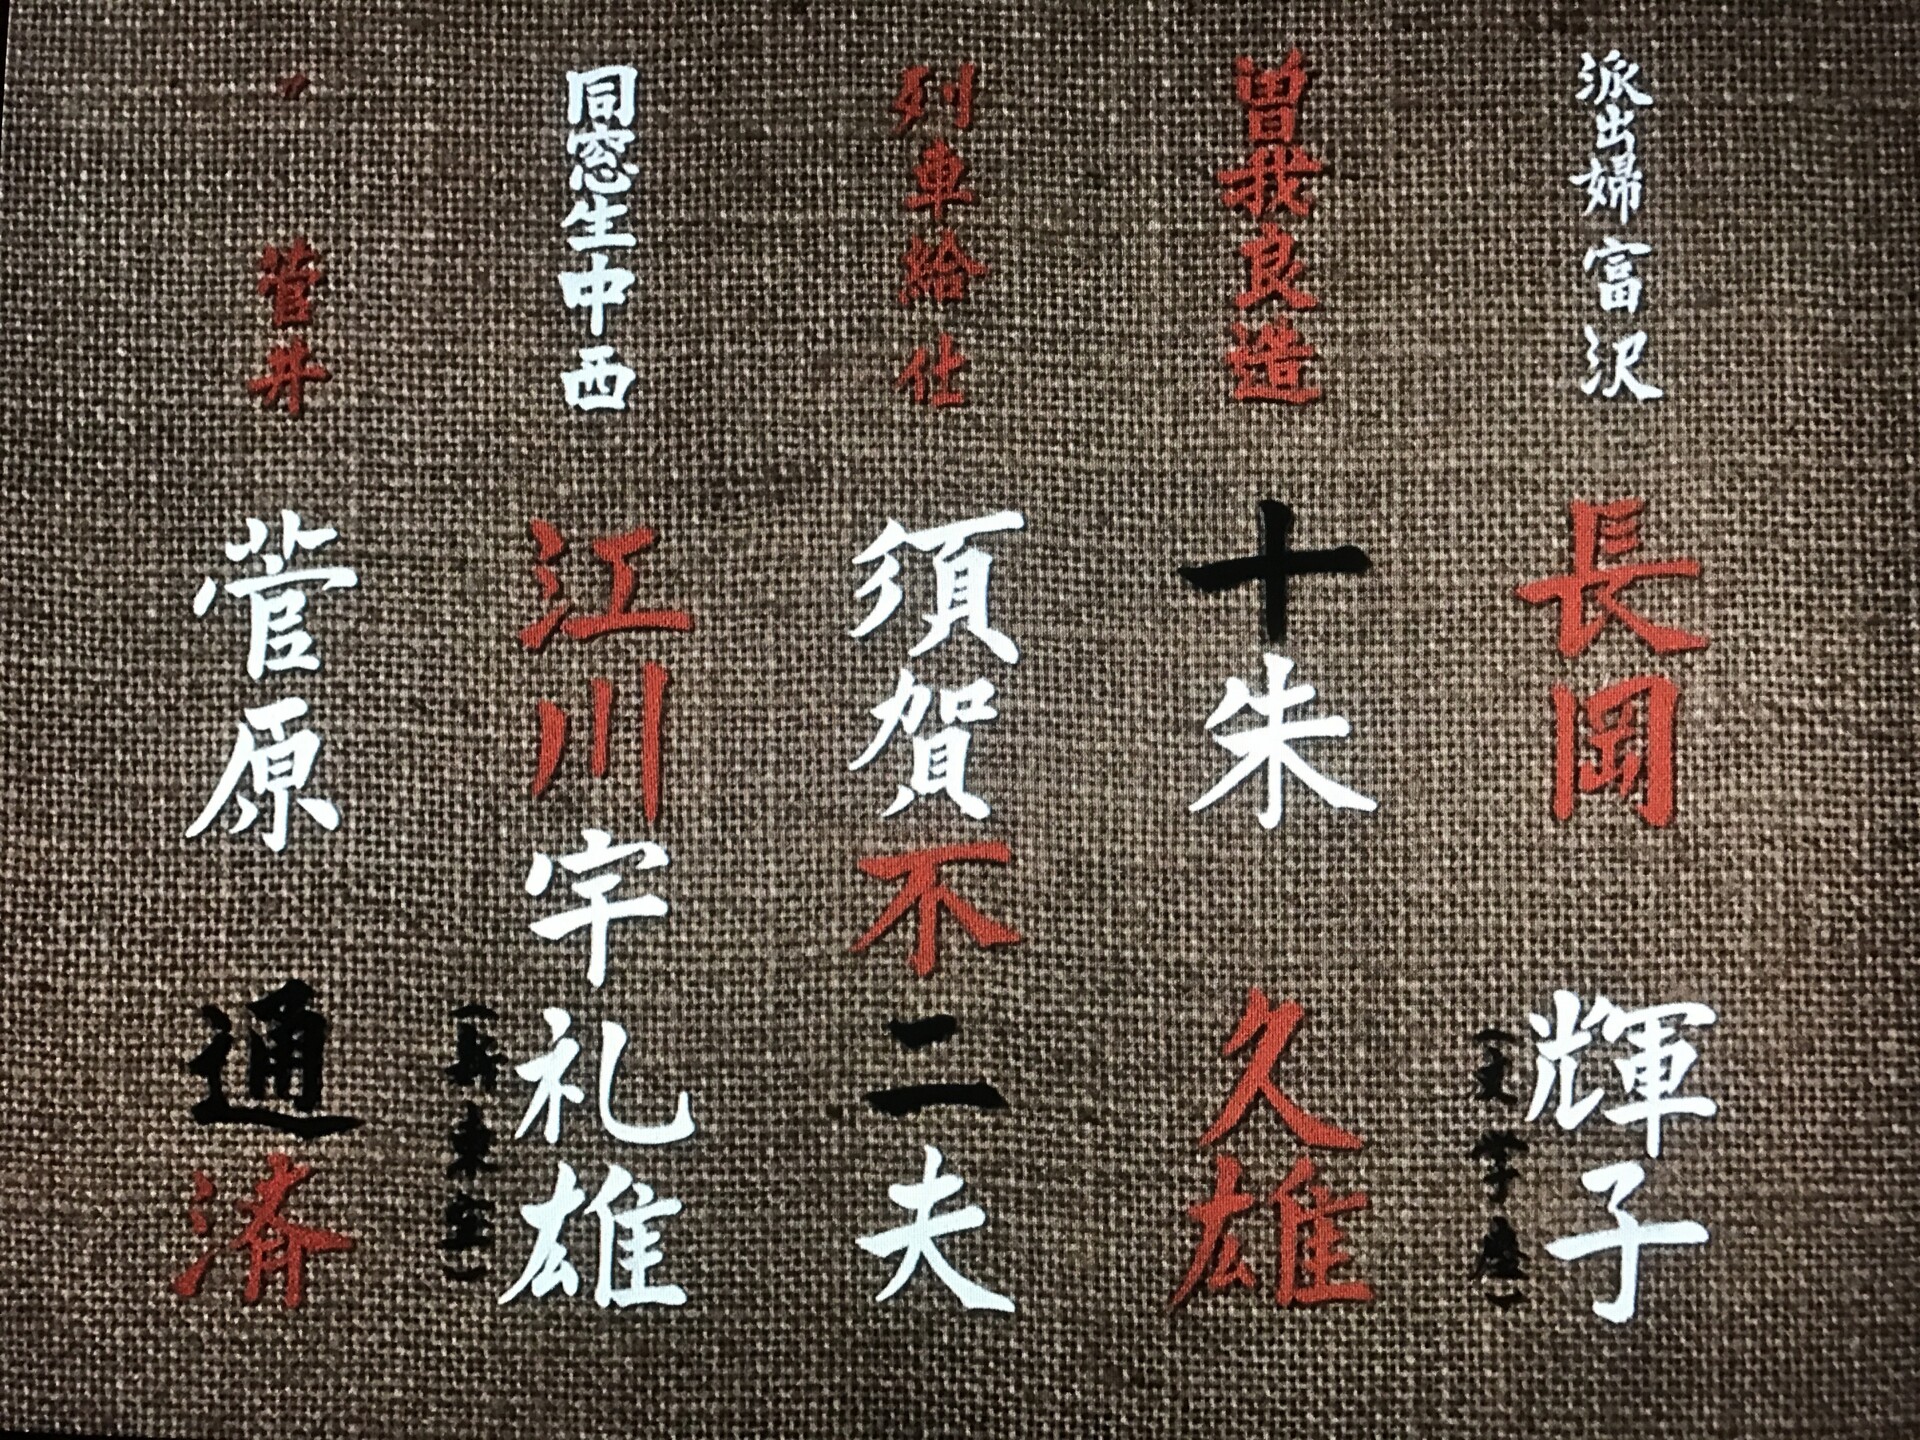 派出婦 富沢 長岡輝子
(文学座)
曽我良造 十朱久雄
列車給仕 須賀不二夫
同窓生中西 江川宇礼雄
(新東宝)
〃 菅井 菅原通済